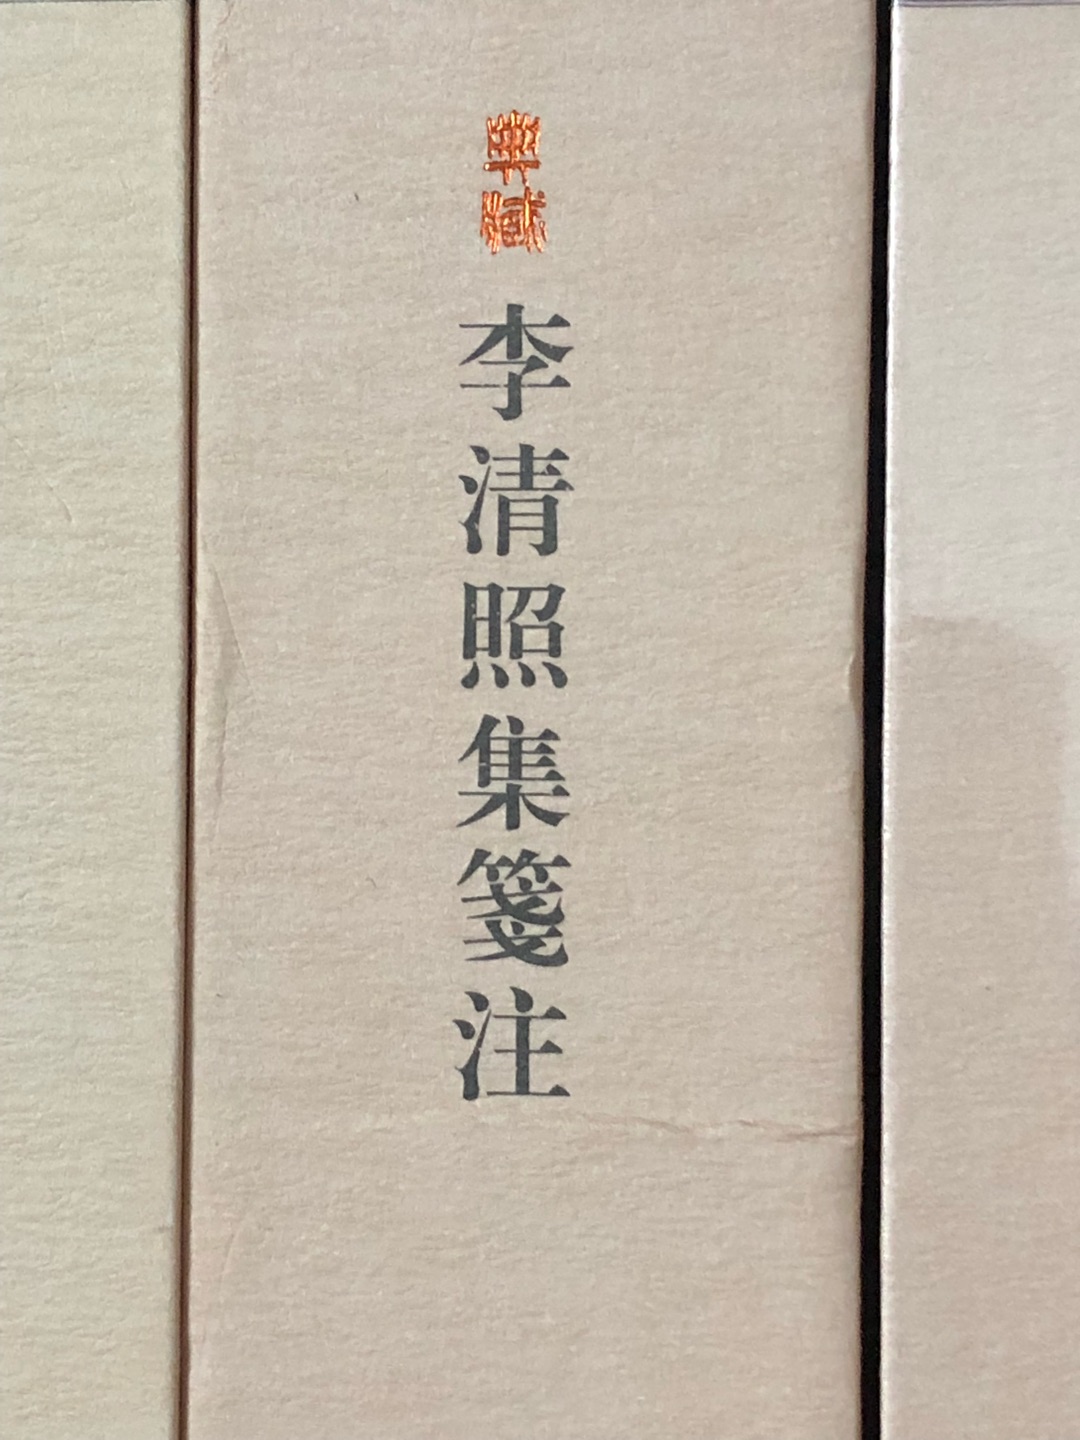 典藏
李清照集箋注